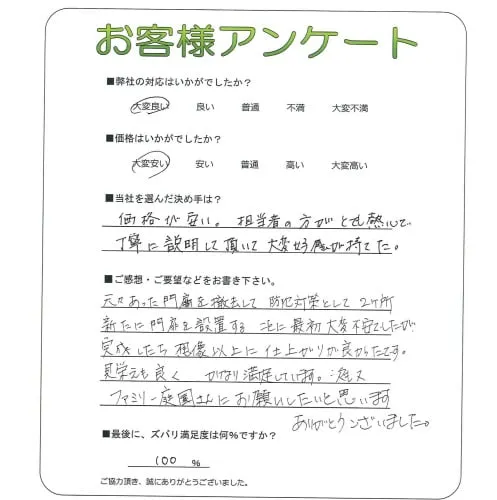 お客様アンケート
■弊社の対応はいかがでしたか?
大変良い 良い 普通 不満 大変不満
■価格はいかがでしたか?
大変安い 安い 普通 高い 大変高い
■当社を選んだ決め手は?
価格が安い。担当者の方がとても熱心で
丁寧に説明して頂いて大変好感が持てた。
■ご感想・ご要望などをお書き下さい。
元々あった門扉を撤去して 防犯対策として 2ヶ所
新たに門扉を設置する ことに最初大変不安でしたが
完成したら 想像以上に仕上がりが良かったです。
見栄えも良く かなり満足しています。
ファミリー庭園さんにお願いしたいと思います
ありがとうございました。
■最後に、ズバリ満足度は何%ですか?
100 %
ご協力頂き、誠にありがとうございました。